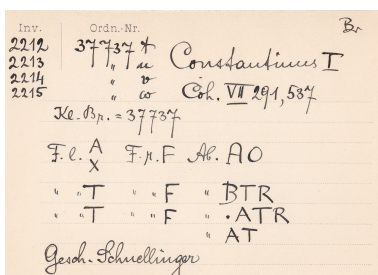 Inv. Ordn.-Nr. Br
2212 37737 t Constantinus I
2213 " u
2214 " v Coh. VII 291,537
2215 " w
Kl. Br. = 37737
F. l. A F. r. F Ab. AO
X
" " T " " F " BTR
" " T " " F " •ATR
" AT
Gesch. Schnellinger